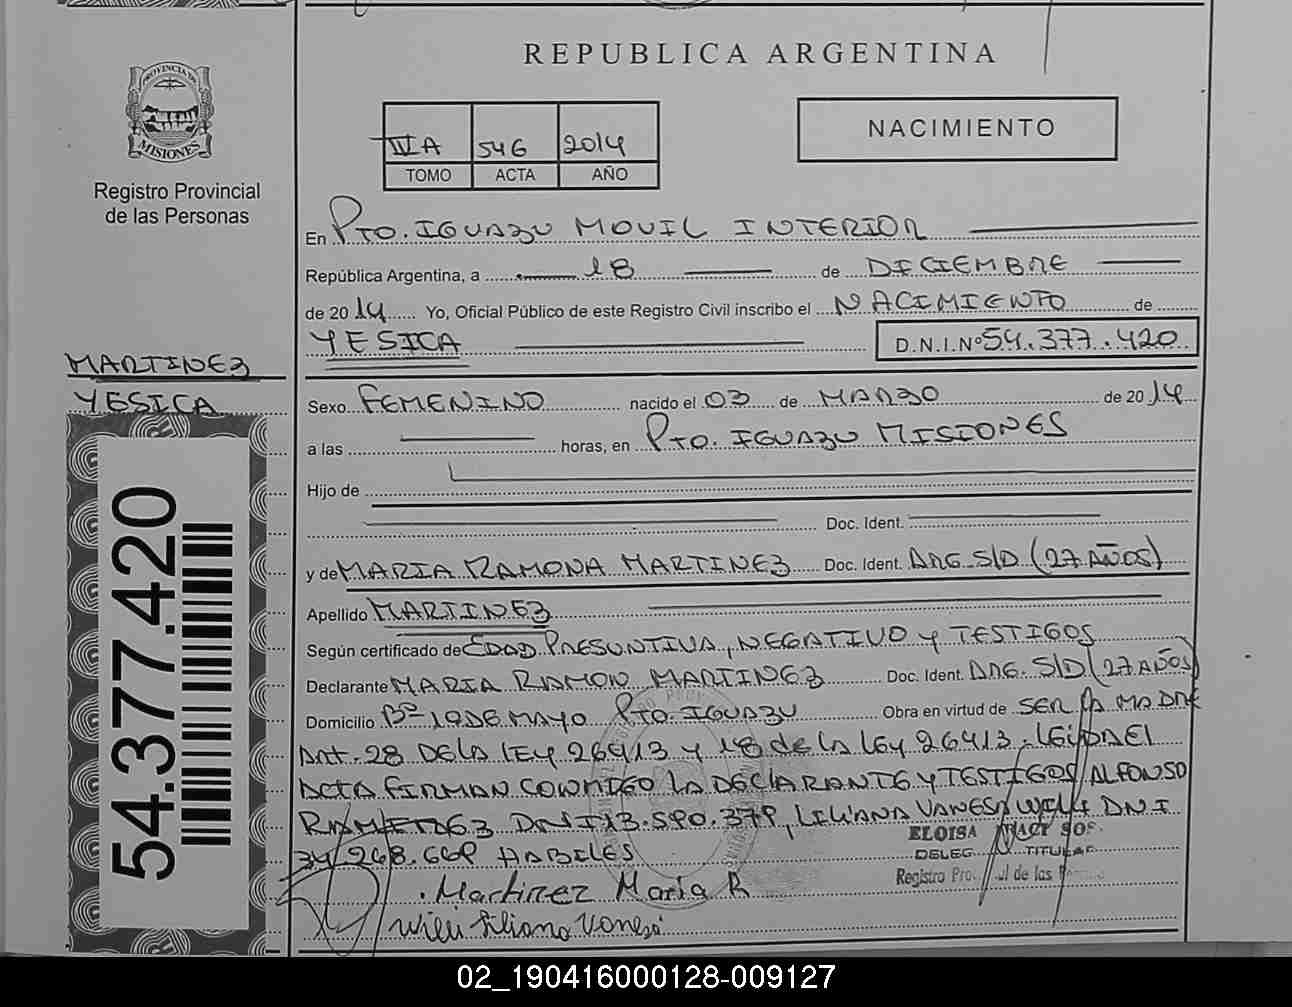 REPUBLICA ARGENTINA
PROVINCIA DE
MISIONES
Registro Provincial
de las Personas
IVA 546 2014
TOMO ACTA AÑO
NACIMIENTO
En PTO. IGUAZU MOVIL INTERIOR
República Argentina, a 18 de DICIEMBRE
de 2014 Yo, Oficial Público de este Registro Civil inscribo el NACIMIENTO de
YESICA D.N.I.Nº 54.377.420
MARTINEZ
YESICA
54.377.420
Sexo FEMENINO nacido el 03 de MARZO de 2014
a las horas, en PTO. IGUAZU MISIONES
Hijo de
Doc. Ident.
y de MARIA RAMONA MARTINEZ Doc. Ident. ARG. S/D (27 AÑOS)
Apellido MARTINEZ
Según certificado de EDAD PRESUNTIVA, NEGATIVO Y TESTIGOS
Declarante MARIA RAMON MARTINEZ Doc. Ident. ARG. S/D (27 AÑOS)
Domicilio Bº 1º DE MAYO PTO. IGUAZU Obra en virtud de SER LA MADRE
ART. 28 DE LA LEY 26413 Y 18 de LA LEY 26413. LEIDA EL
ACTA FIRMAN CONMIGO LA DECLARANTE Y TESTIGOS ALFONSO
DNI 13.590.379, LILIANA VANESA DNI
34.268.669 HABILES
ELOISA
DELEG TITULAR
Registro al de las
Martinez Maria R
Liliana Vanesa
02_190416000128-009127